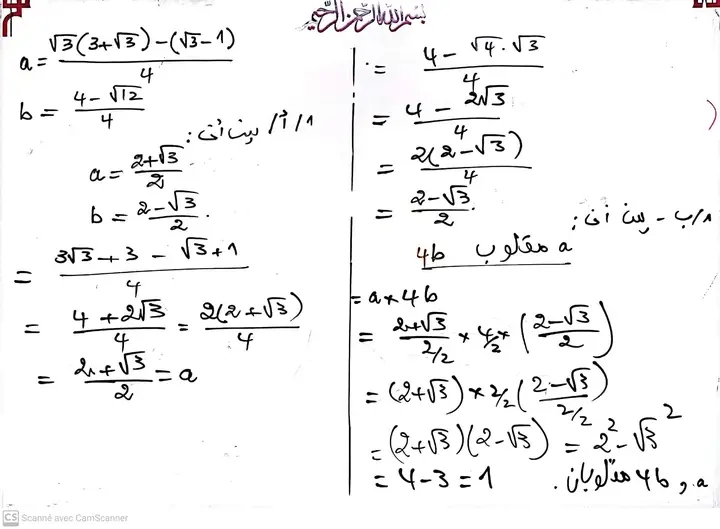 بسم الله الرحمن الرحيم
a = (√3(3+√3) - (√3-1))/4
b = (4-√12)/4
1/أ/ بين أن:
a = (2+√3)/2
b = (2-√3)/2.
= (3√3+3-√3+1)/4
= (4+2√3)/4 = (2(2+√3))/4
= (2+√3)/2 = a
= (4-√4·√3)/4
= (4-2√3)/4
= (2(2-√3))/4
= (2-√3)/2.
1/ب - بين أن:
a مقلوب 4b
= a×4b
= (2+√3)/(2/2) × 4/2 × ((2-√3)/2)
= (2+√3) × 2/2 ((2-√3)/(2/2))
= (2+√3)(2-√3) = 2² - √3²
= 4-3 = 1 a و 4b مقلوبان.
CS Scanné avec CamScanner